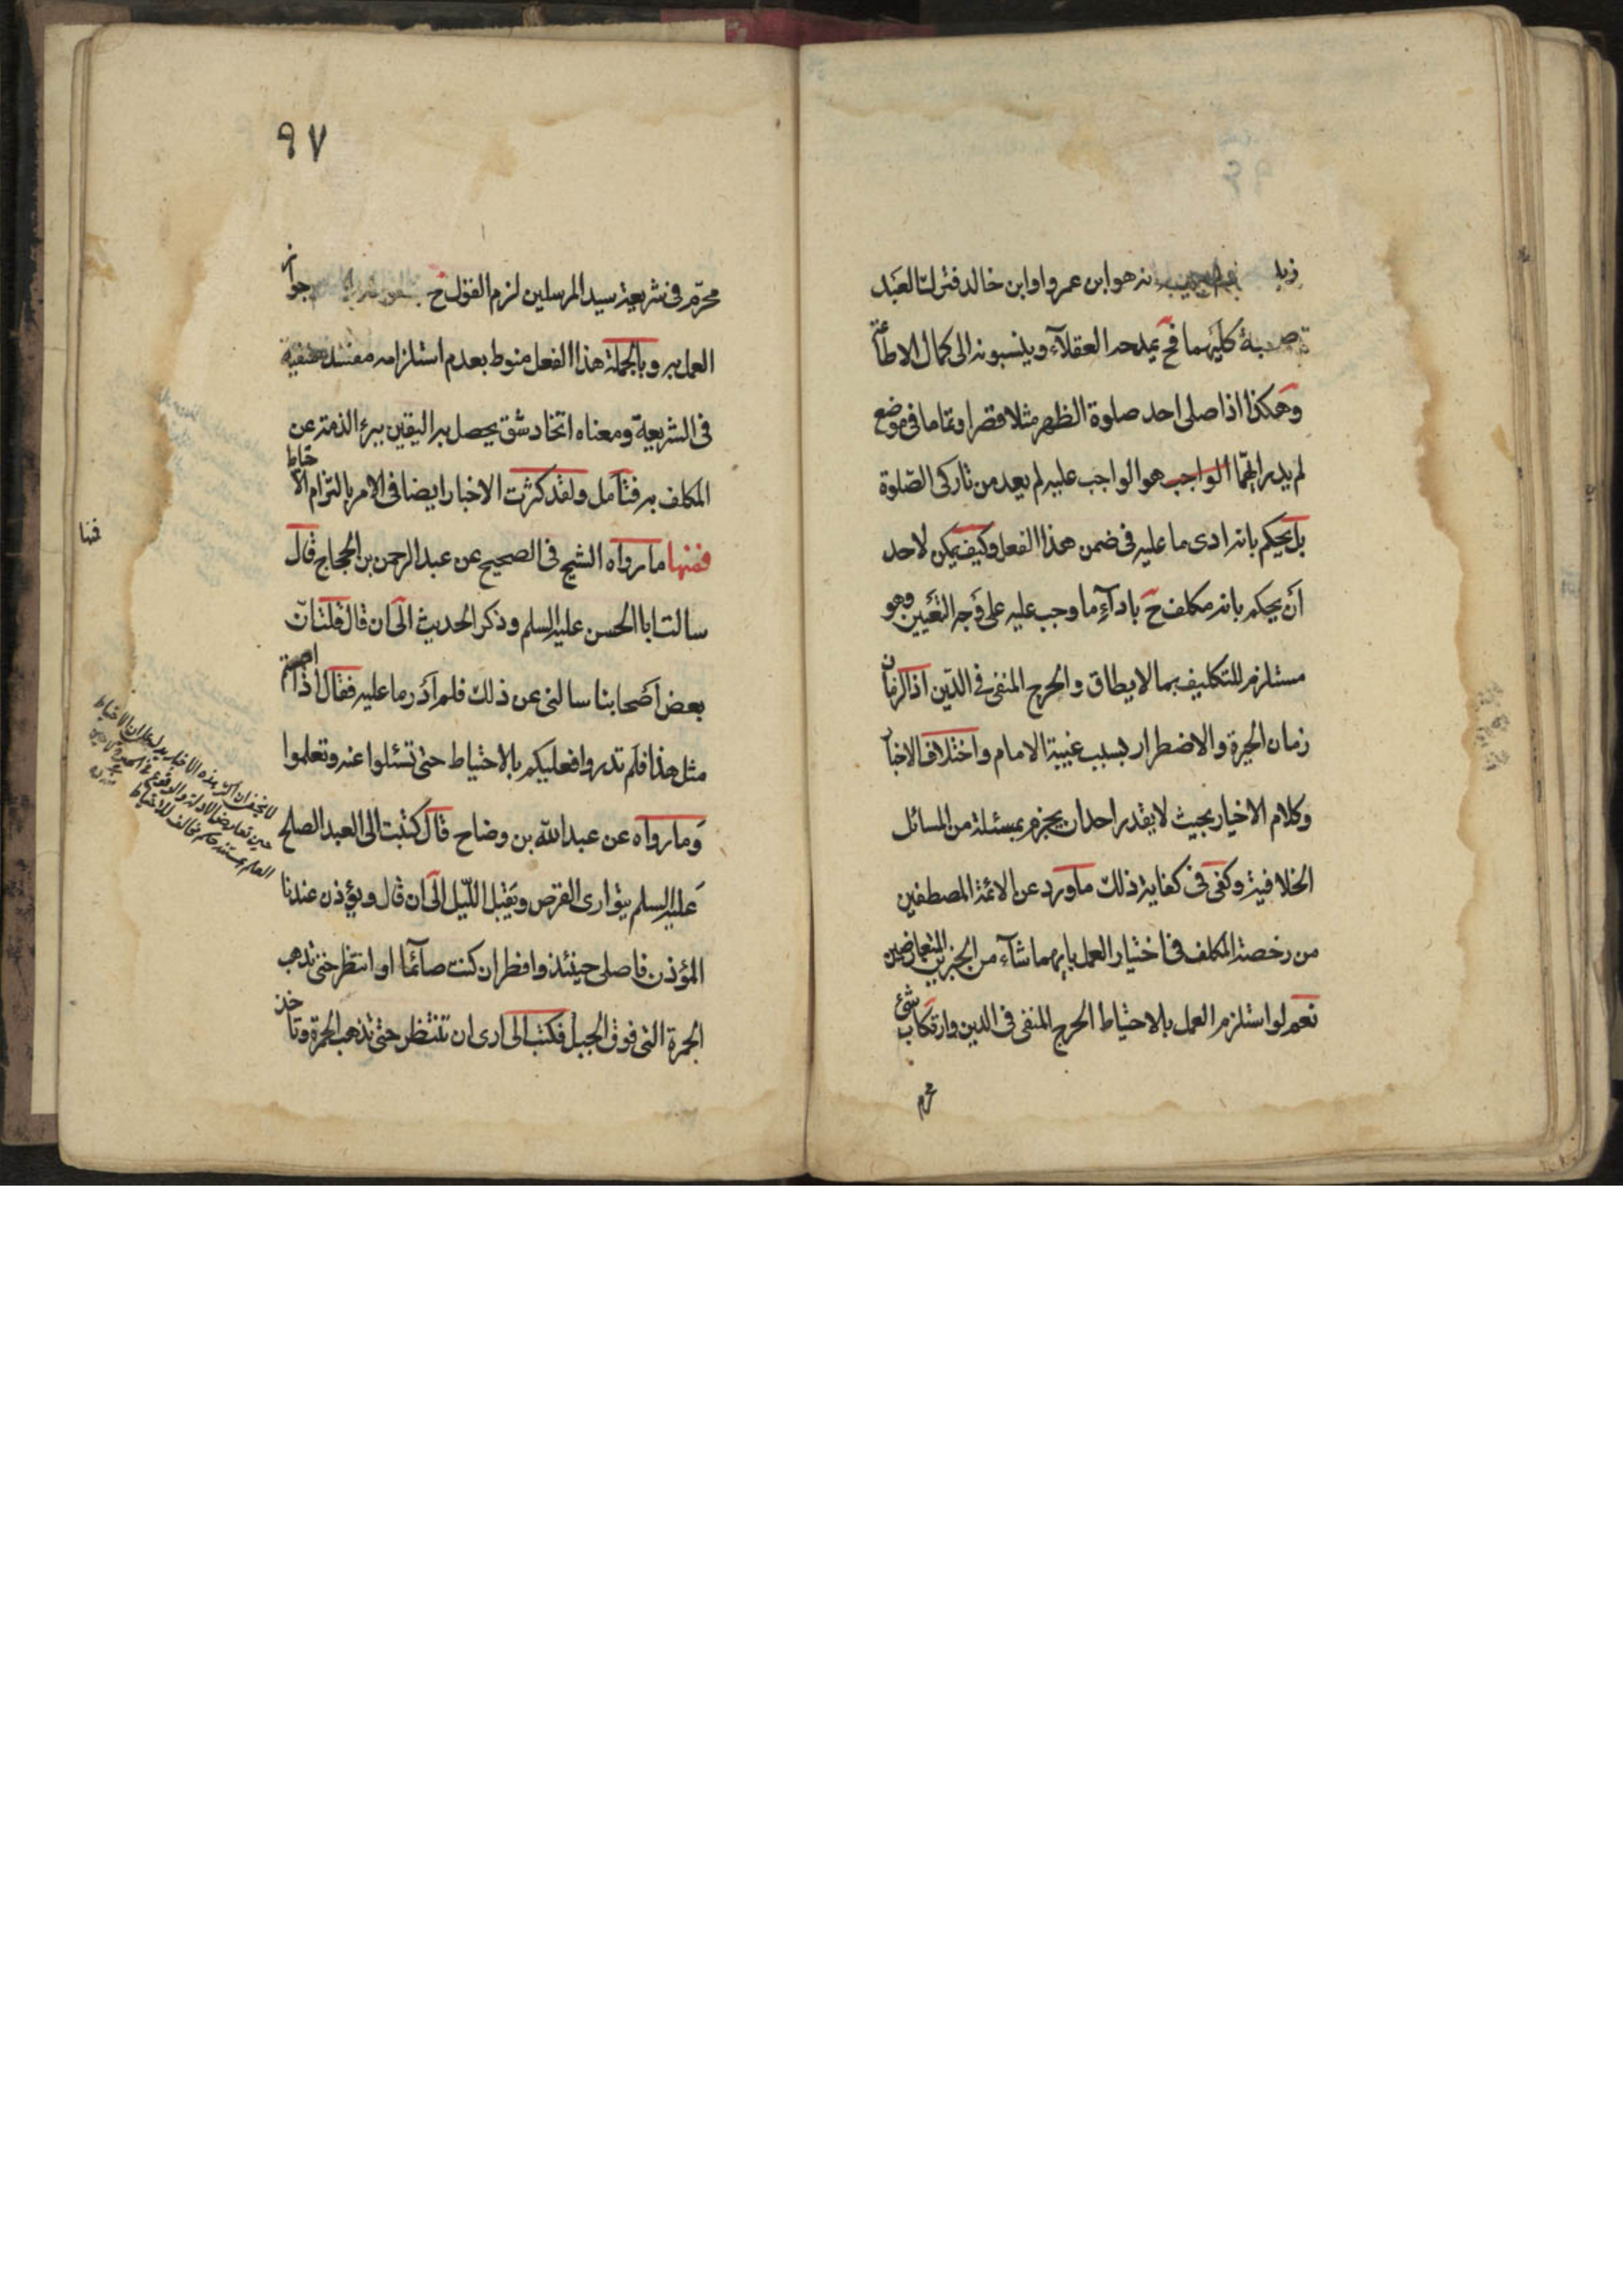 انه هو ابن عمرو او ابن خالد فترك العبد
كليهما فح يمدحه العقلاء وينسبونه الى كمال الاطاعة
وهكذا اذا صلى احد صلوة الظهر مثلا قصرا وتماما في موضع
لم يدر ايهما الواجب هو الواجب عليه لم يعد من تاركى الصلوة
بل يحكم بانه ادى ما عليه في ضمن هذا الفعل وكيف يمكن لاحد
ان يحكم بانه مكلف ح باداء ما وجب عليه على وجه التعيين وهو
مستلزم للتكليف بما لا يطاق والحرج المنفى في الدين اذ الزمان
زمان الحيرة والاضطرار بسبب غيبة الامام واختلاف الاخبار
وكلام الاخيار بحيث لا يقدر احد ان يجزم بمسئلة من المسائل
الخلافية وكفى في كفاية ذلك ما ورد عن الائمة المصطفين
من رخصة المكلف في اختيار العمل بايهما شاء من الخبرين المتعارضين
نعم لو استلزم العمل بالاحتياط الحرج المنفى في الدين وارتكاب شئ
محرم
٩٧
محرم في شريعة سيد المرسلين لزم القول ح جواز
العمل به وبالجملة هذا الفعل منوط بعدم استلزامه مفسدة منفية
في الشريعة ومعناه اتخاذ شق يحصل به اليقين ببرء الذمة عن
المكلف به فتامل ولقد كثرت الاخبار ايضا في الامر بالتزام الاحتياط
فمنها ما رواه الشيخ في الصحيح عن عبد الرحمن بن الحجاج قال
سالت ابا الحسن عليه السلم وذكر الحديث الى ان قال قلت ان
بعض اصحابنا سالنى عن ذلك فلم ادر ما عليه فقال اذا اصبتم
مثل هذا فلم تدروا فعليكم بالاحتياط حتى تسئلوا عنه وتعلموا
وما رواه عن عبد الله بن وضاح قال كتبت الى العبد الصلح
عليه السلم يتوارى القرص ويقبل الليل الى ان قال ويؤذن عندنا
المؤذن فاصلى حينئذ وافطر ان كنت صائما او انتظر حتى تذهب
الحمرة التى فوق الجبل فكتب الى ارى ان تنتظر حتى تذهب الحمرة وتاخذ
لا يخفى ان اكثر هذه الاخبار يدل على ان الاحتياط
حين تعارض الادلة والوقوع في
العلم بمستند حكم مخالف للاحتياط